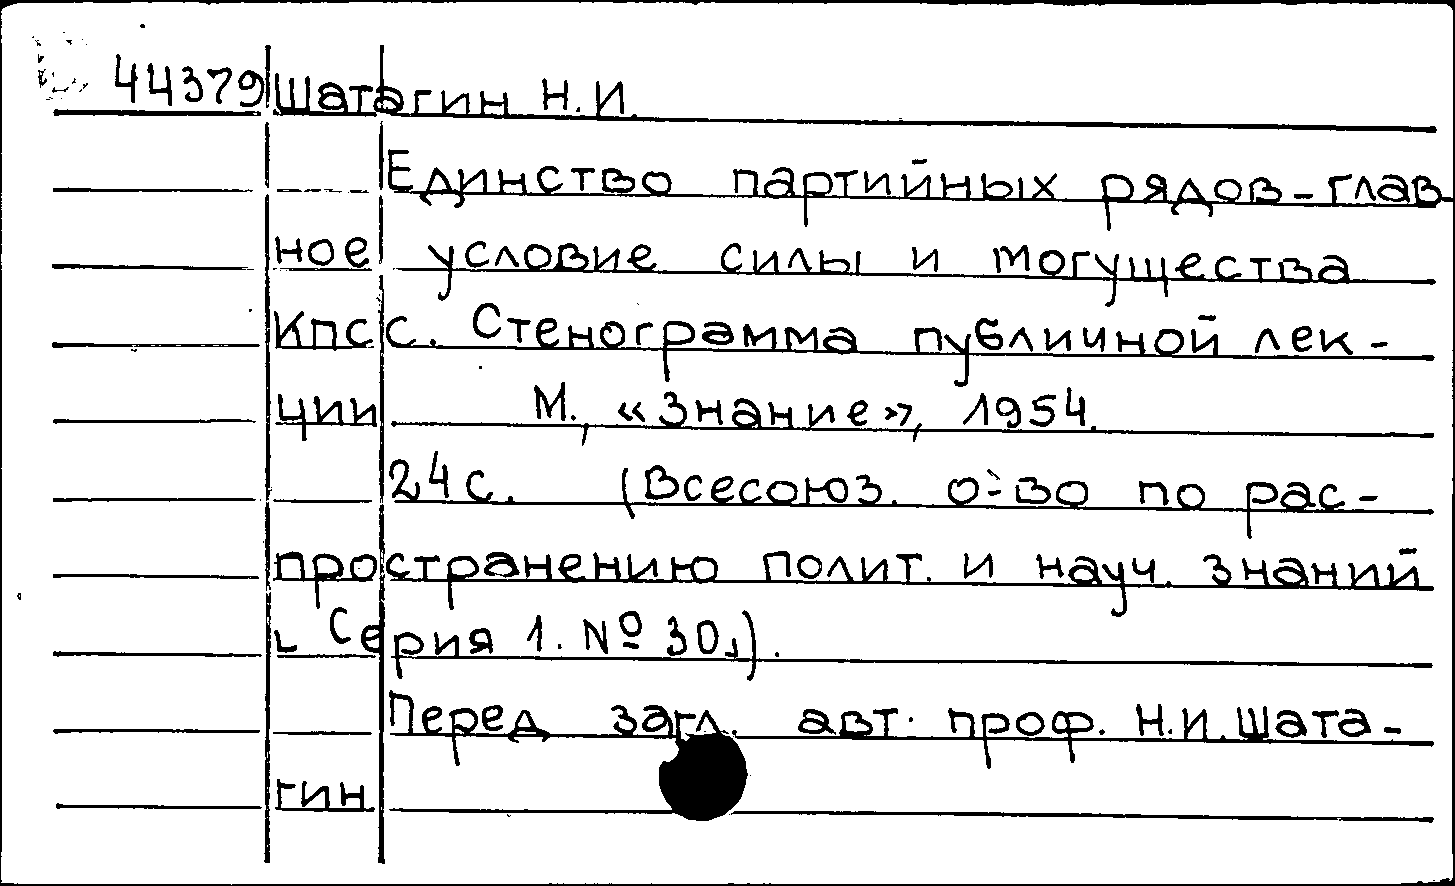 44379 Шатагин Н.И.
Единство партийных рядов - глав-
ное условие силы и могущества
КПСС. Стенограмма публичной лек-
ции М., «Знание», 1954.
24 с. (Всесоюз. о-во по рас-
пространению полит. и науч. знаний
Серия 1. № 30).
Перед загл. авт. проф. Н.И. Шата-
гин